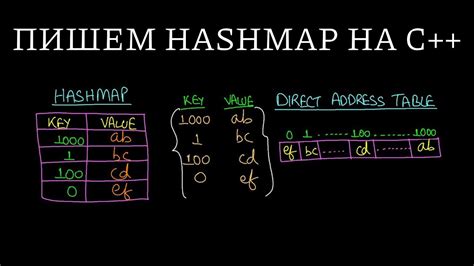 ПИШЕМ HASHMAP НА C++
HASHMAP
KEY VALUE
1000 ab
1 bc
100 cd
0 ef
KEY VALUE
1000 ab
1 bc
100 cd
0 ef
DIRECT ADDRESS TABLE
0 1 ...... 100 ...... 1000
ef bc ...... cd ...... ab